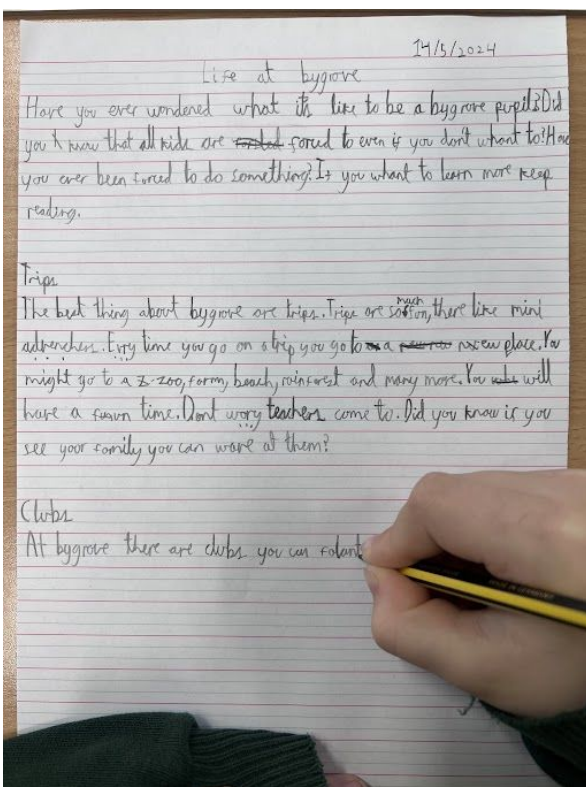 14/5/2024
Life at bygrove
Have you ever wondened what its like to be a bygrove pupil? Did
you know that all kids are forced to even if you don't whant to? Have
you ever been forced to do something? If you whant to learn more keep
reading.
Trips
The best thing about bygrove are trips. Trips are so much fun, there like mini
adrenchers. Evry time you go on a trip you go to a new place. You
might go to a zoo, farm, beach, rainforest and many more. You will
have a time. Dont wory teachers come to. Did you know if you
see your family you can wave at them?
Clubs
At bygrove there are clubs you can folant